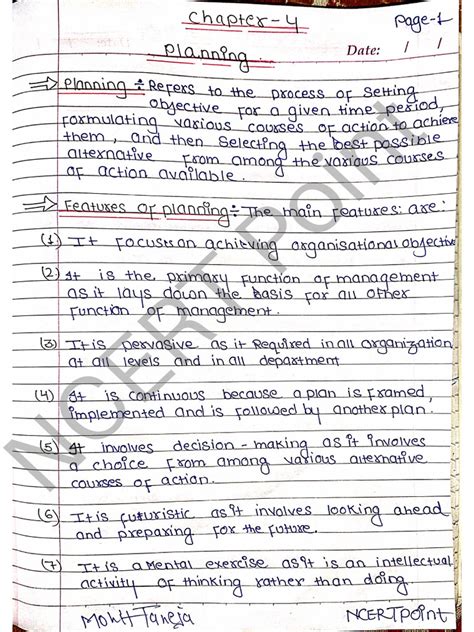 Chapter-4
Page-1
Planning
Date: / /
⇒ Planning ÷ Refers to the process of setting
objective for a given time period,
formulating various courses of action to achieve
them, and then selecting the best possible
alternative from among the various courses
of action available.
⇒ Features of planning ÷ The main features: are:
(1) It focus on achieving organisational objective
(2) It is the primary function of management
as it lays down the basis for all other
function of management.
(3) It is pervasive as it Required in all organization
at all levels and in all department
(4) It is continuous because a plan is framed,
implemented and is followed by another plan.
(5) It involves decision-making as it involves
a choice from among various alternative
courses of action.
(6) It is futuristic as it involves looking ahead
and preparing for the future.
(7) It is a mental exercise as it is an intellectual
activity of thinking rather than doing.
Mohit Taneja
NCERTPoint
NCERT Point